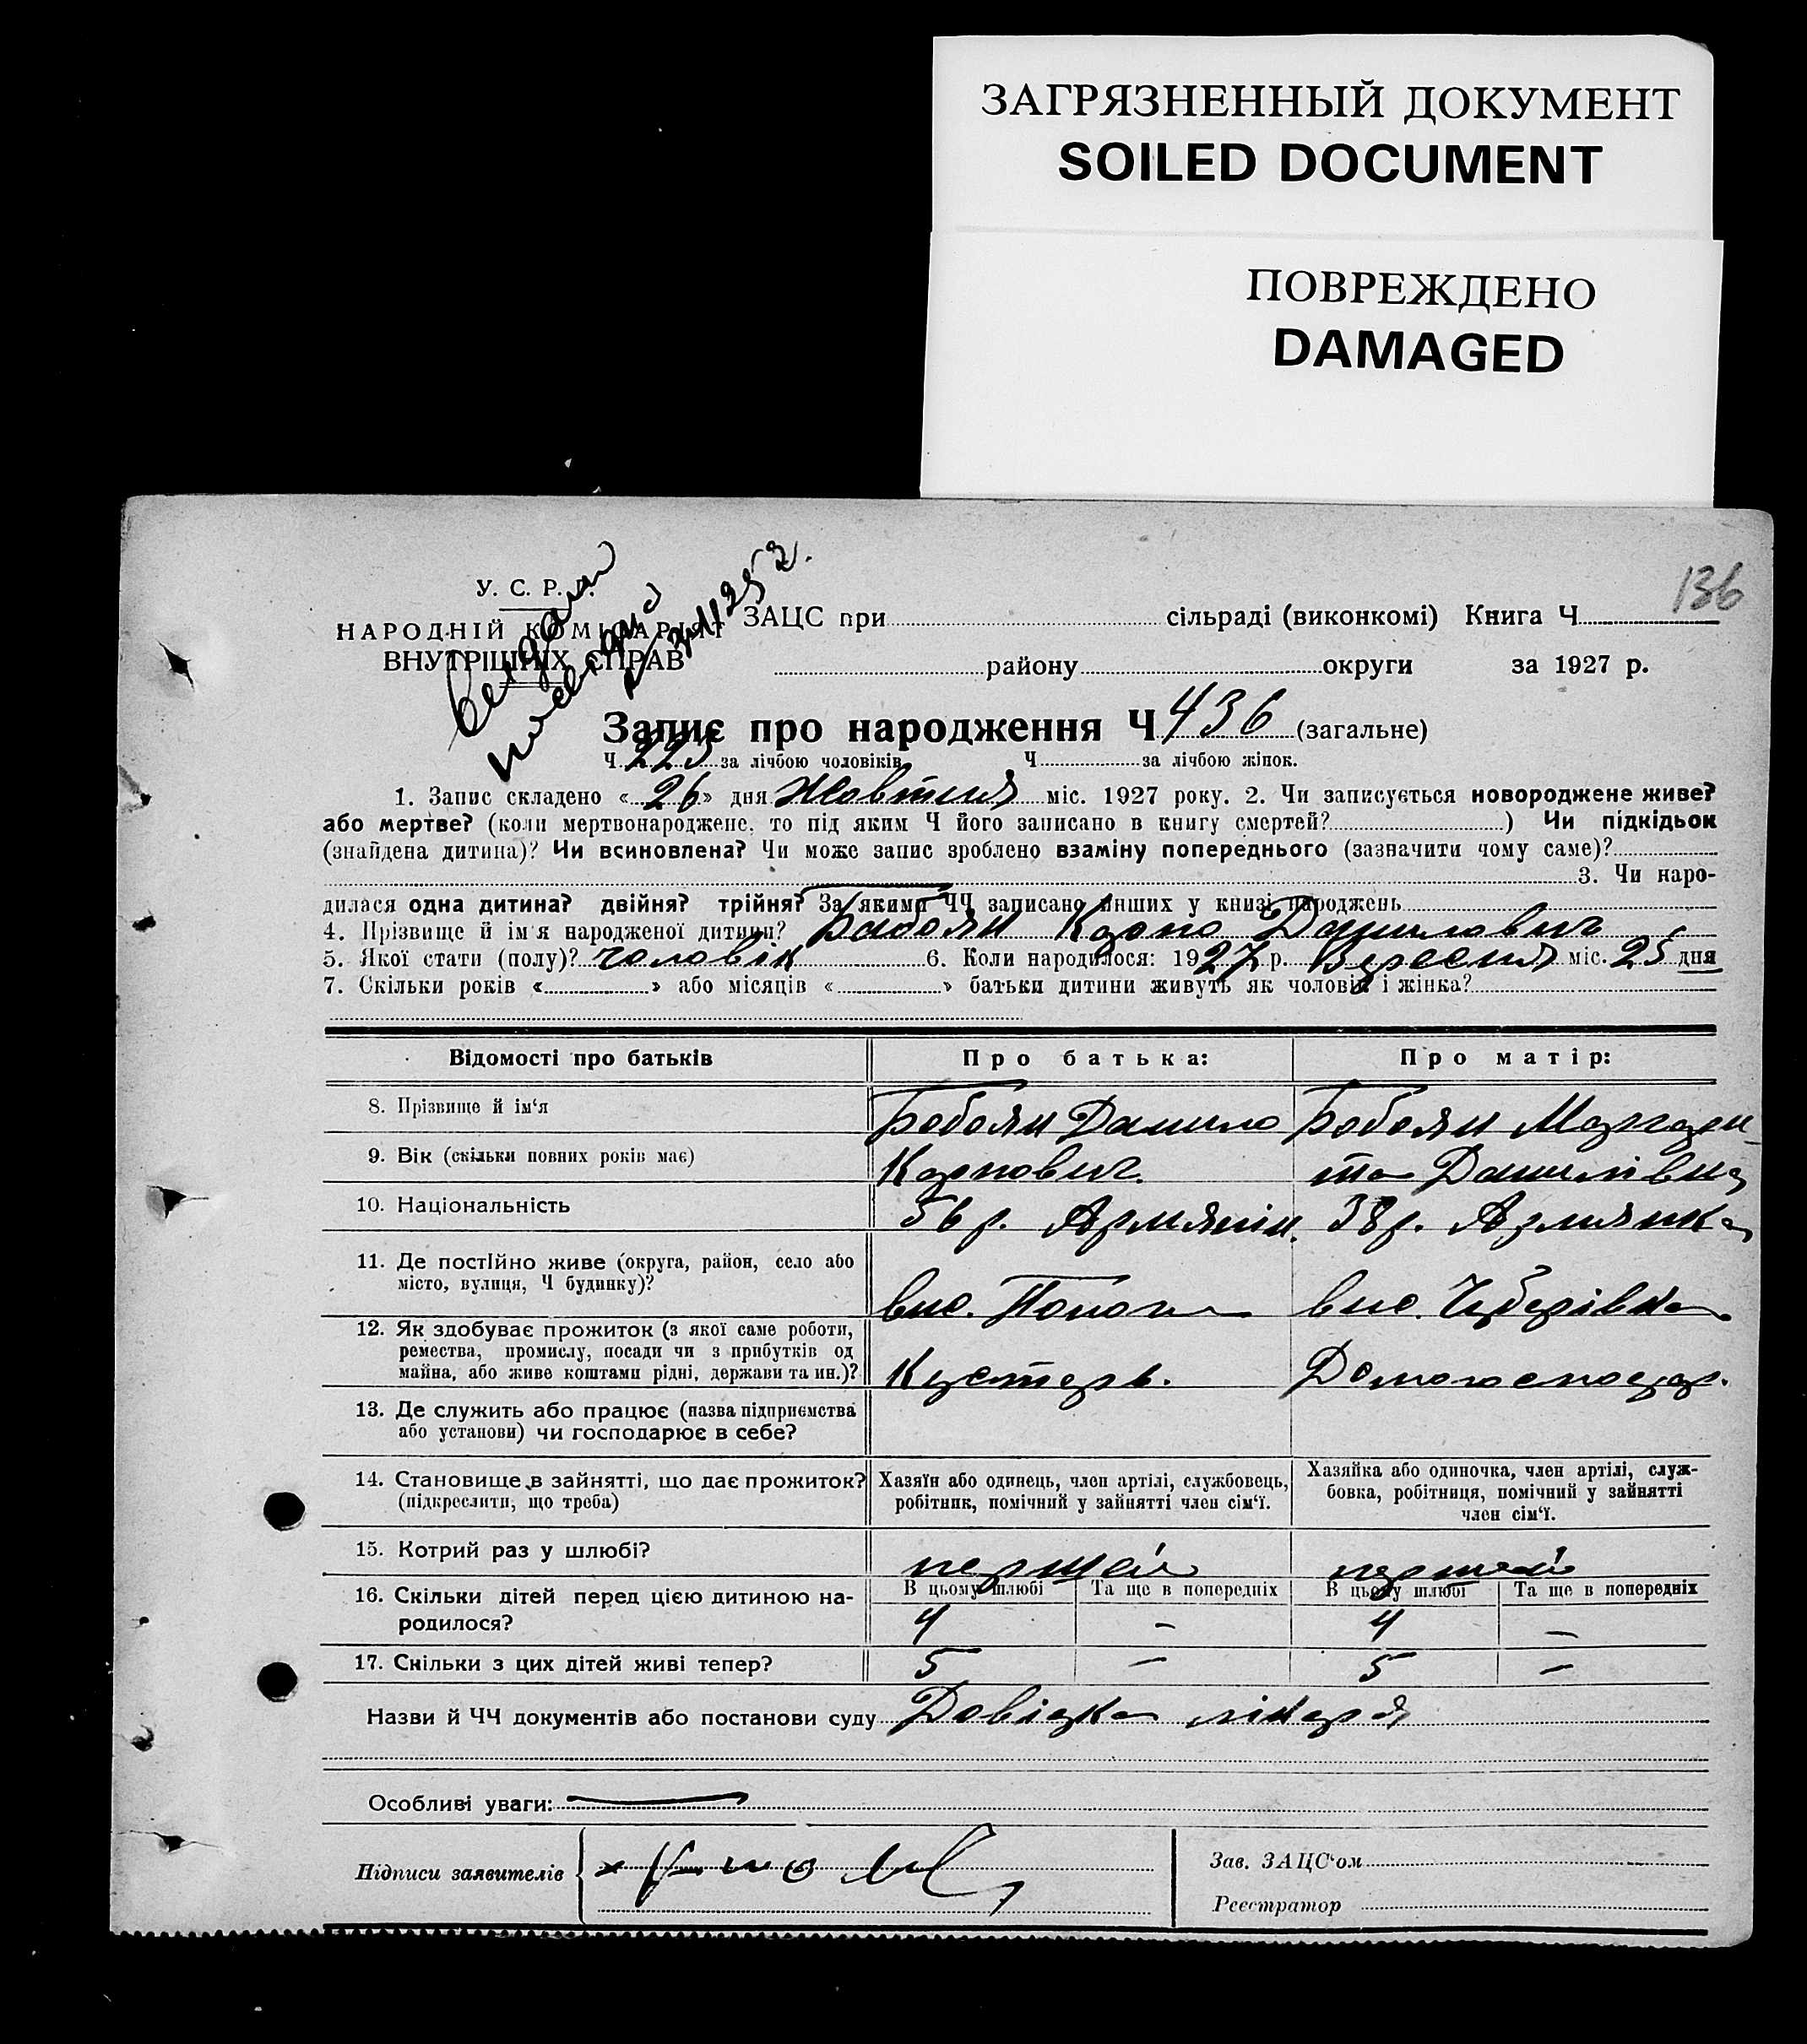 ЗАГРЯЗНЕННЫЙ ДОКУМЕНТ
SOILED DOCUMENT
ПОВРЕЖДЕНО
DAMAGED
136
У. С. Р. Р.
НАРОДНІЙ КОМІСАРІЯТ
ВНУТРІШНІХ СПРАВ
ЗАЦС при сільраді (виконкомі) Книга Ч.
району округи за 1927 р.
Запис про народження Ч 436 (загальне)
Ч. 223 за лічбою чоловіків Ч за лічбою жінок.
1. Запис складено « 26 » дня Жовтня міс. 1927 року. 2. Чи записується новороджене живе?
або мертве? (коли мертвонароджене, то під яким Ч його записано в книгу смертей? ) Чи підкідьок
(знайдена дитина)? Чи всиновлена? Чи може запис зроблено взаміну попереднього (зазначити чому саме)?
3. Чи наро-
дилася одна дитина? двійня? трійня? За якими ЧЧ записано инших у книзі народжень
4. Прізвище й ім'я народженої дитини? Бабоян Карпо Данилович
5. Якої стати (полу)? чоловік 6. Коли народилося: 1927 р. Вересня міс. 25 дня
7. Скільки років « » або місяців « » батьки дитини живуть як чоловік і жінка?
Відомості про батьків Про батька: Про матір:
8. Прізвище й ім'я Бабоян Данило Бабоян Маргари-
9. Вік (скільки повних років має) Карпович. та Данилівна
10. Національність 56 р. Армянін. 38 р. Армянка
11. Де постійно живе (округа, район, село або
місто, вулиця, Ч будинку)? вис. вис.
12. Як здобуває прожиток (з якої саме роботи,
ремества, промислу, посади чи з прибутків од
майна, або живе коштами рідні, держави та ин.)? Кустарь. Домогосподар.
13. Де служить або працює (назва підприємства
або установи) чи господарює в себе?
14. Становище в зайнятті, що дає прожиток?
(підкреслити, що треба)
Хазяїн або одинець, член артілі, службовець,
робітник, помічний у зайнятті член сім'ї.
Хазяйка або одиночка, член артілі, служ-
бовка, робітниця, помічний у зайнятті
член сім'ї.
15. Котрий раз у шлюбі? перший перший
В цьому шлюбі Та ще в попередніх В цьому шлюбі Та ще в попередніх
16. Скільки дітей перед цією дитиною на-
родилося? 4 – 4 –
17. Скільки з цих дітей живі тепер? 5 – 5 –
Назви й ЧЧ документів або постанови суду Довідка лікаря
Особливі уваги:
Підписи заявителів
Зав. ЗАЦС'ом
Реєстратор